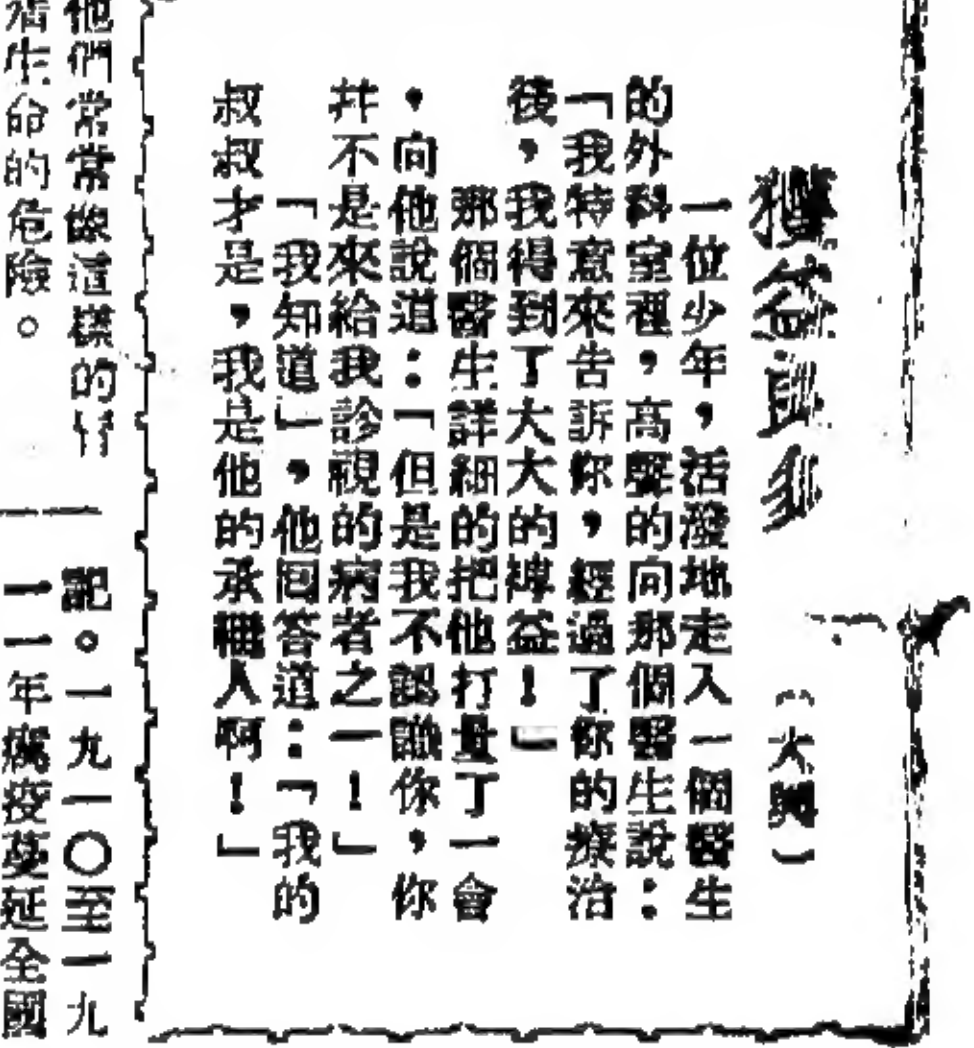 獲益匪我
(大興)
一位少年,活潑地走入一個醫生
的外科室裡,高聲的向那個醫生說:
「我特意來告訴你,經過了你的療治
後,我得到了大大的裨益!」
那個醫生詳細的把他打量了一會
,向他說道:「但是我不認識你,你
幷不是來給我診視的病者之一!」
「我知道」,他回答道:「我的
叔叔才是,我是他的承繼人啊!」
他們常常做這樣的
生命的危險。
記。一九一〇至一九
一一年癘疫蔓延全國